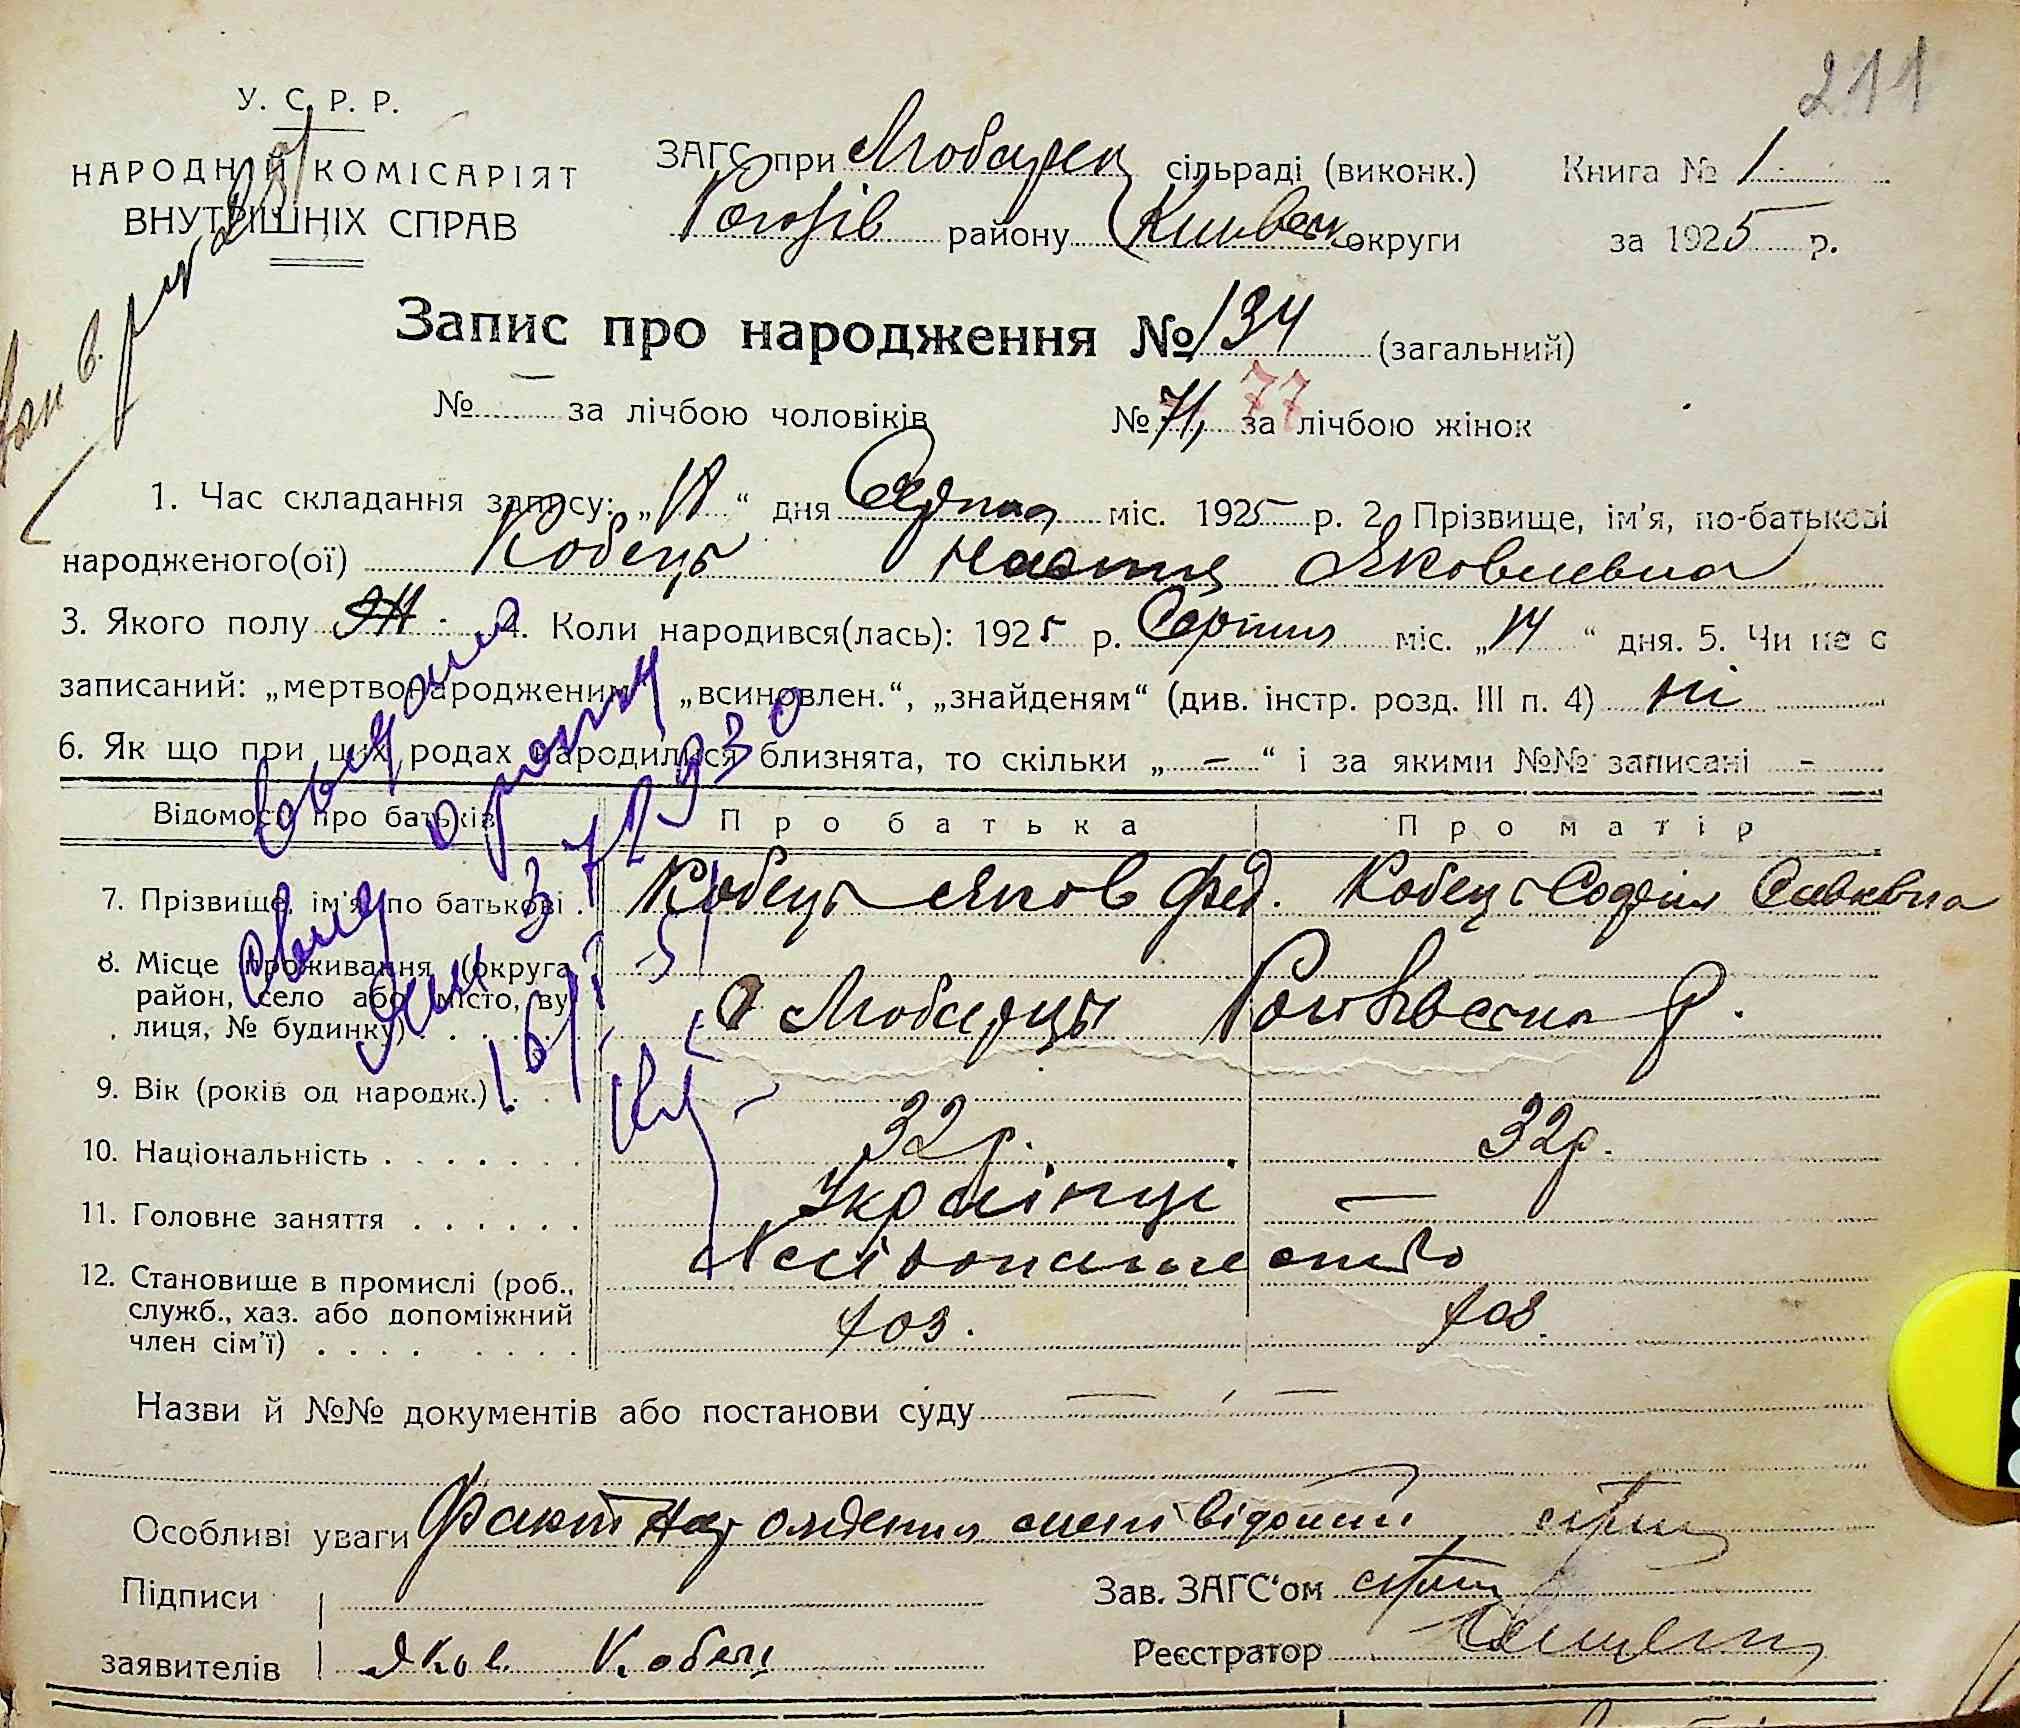 211
У. С. Р. Р.
НАРОДНІЙ КОМІСАРІЯТ
ВНУТРІШНІХ СПРАВ
ЗАГС при Любарец сільраді (виконк.) Книга № 1
Рогозів району Київськ округи за 1925 р.
Запис про народження № 134 (загальний)
№ — за лічбою чоловіків № 71, 77 за лічбою жінок
1. Час складання запису: „ “ дня Серпня міс. 1925 р. 2. Прізвище, ім'я, по-батькові
народженого(ої) Кобець Настя Яковлевна
3. Якого полу Ж. 4. Коли народився(лась): 1925 р. Серпня міс. „14“ дня. 5. Чи не є
записаний: „мертвонародженим“, „всиновлен.“, „знайденям“ (див. інстр. розд. III п. 4) ні
6. Як що при цих родах народилися близнята, то скільки „ — “ і за якими №№ записані -
Відомості про батьків Про батька Про матір
7. Прізвище, ім'я, по батькові . Кобець Яков Фед. Кобець Софія Савквна
8. Місце проживання (округа
район, село або місто, ву-
лиця, № будинку) . . . . . с Любарці р.
9. Вік (років од народж.) . .
32р. 32р.
10. Національність . . . . . . .
Українці —
11. Головне заняття . . . . . .
12. Становище в промислі (роб.,
служб., хаз. або допоміжний
член сім'ї) . . . . . . . . хоз. хоз.
выдана
о рожд
Свид
16/
Назви й №№ документів або постанови суду — —
Особливі уваги Факт народження мені відомий
Підписи
заявителів Яков Кобець
Зав. ЗАГС'ом
Реєстратор